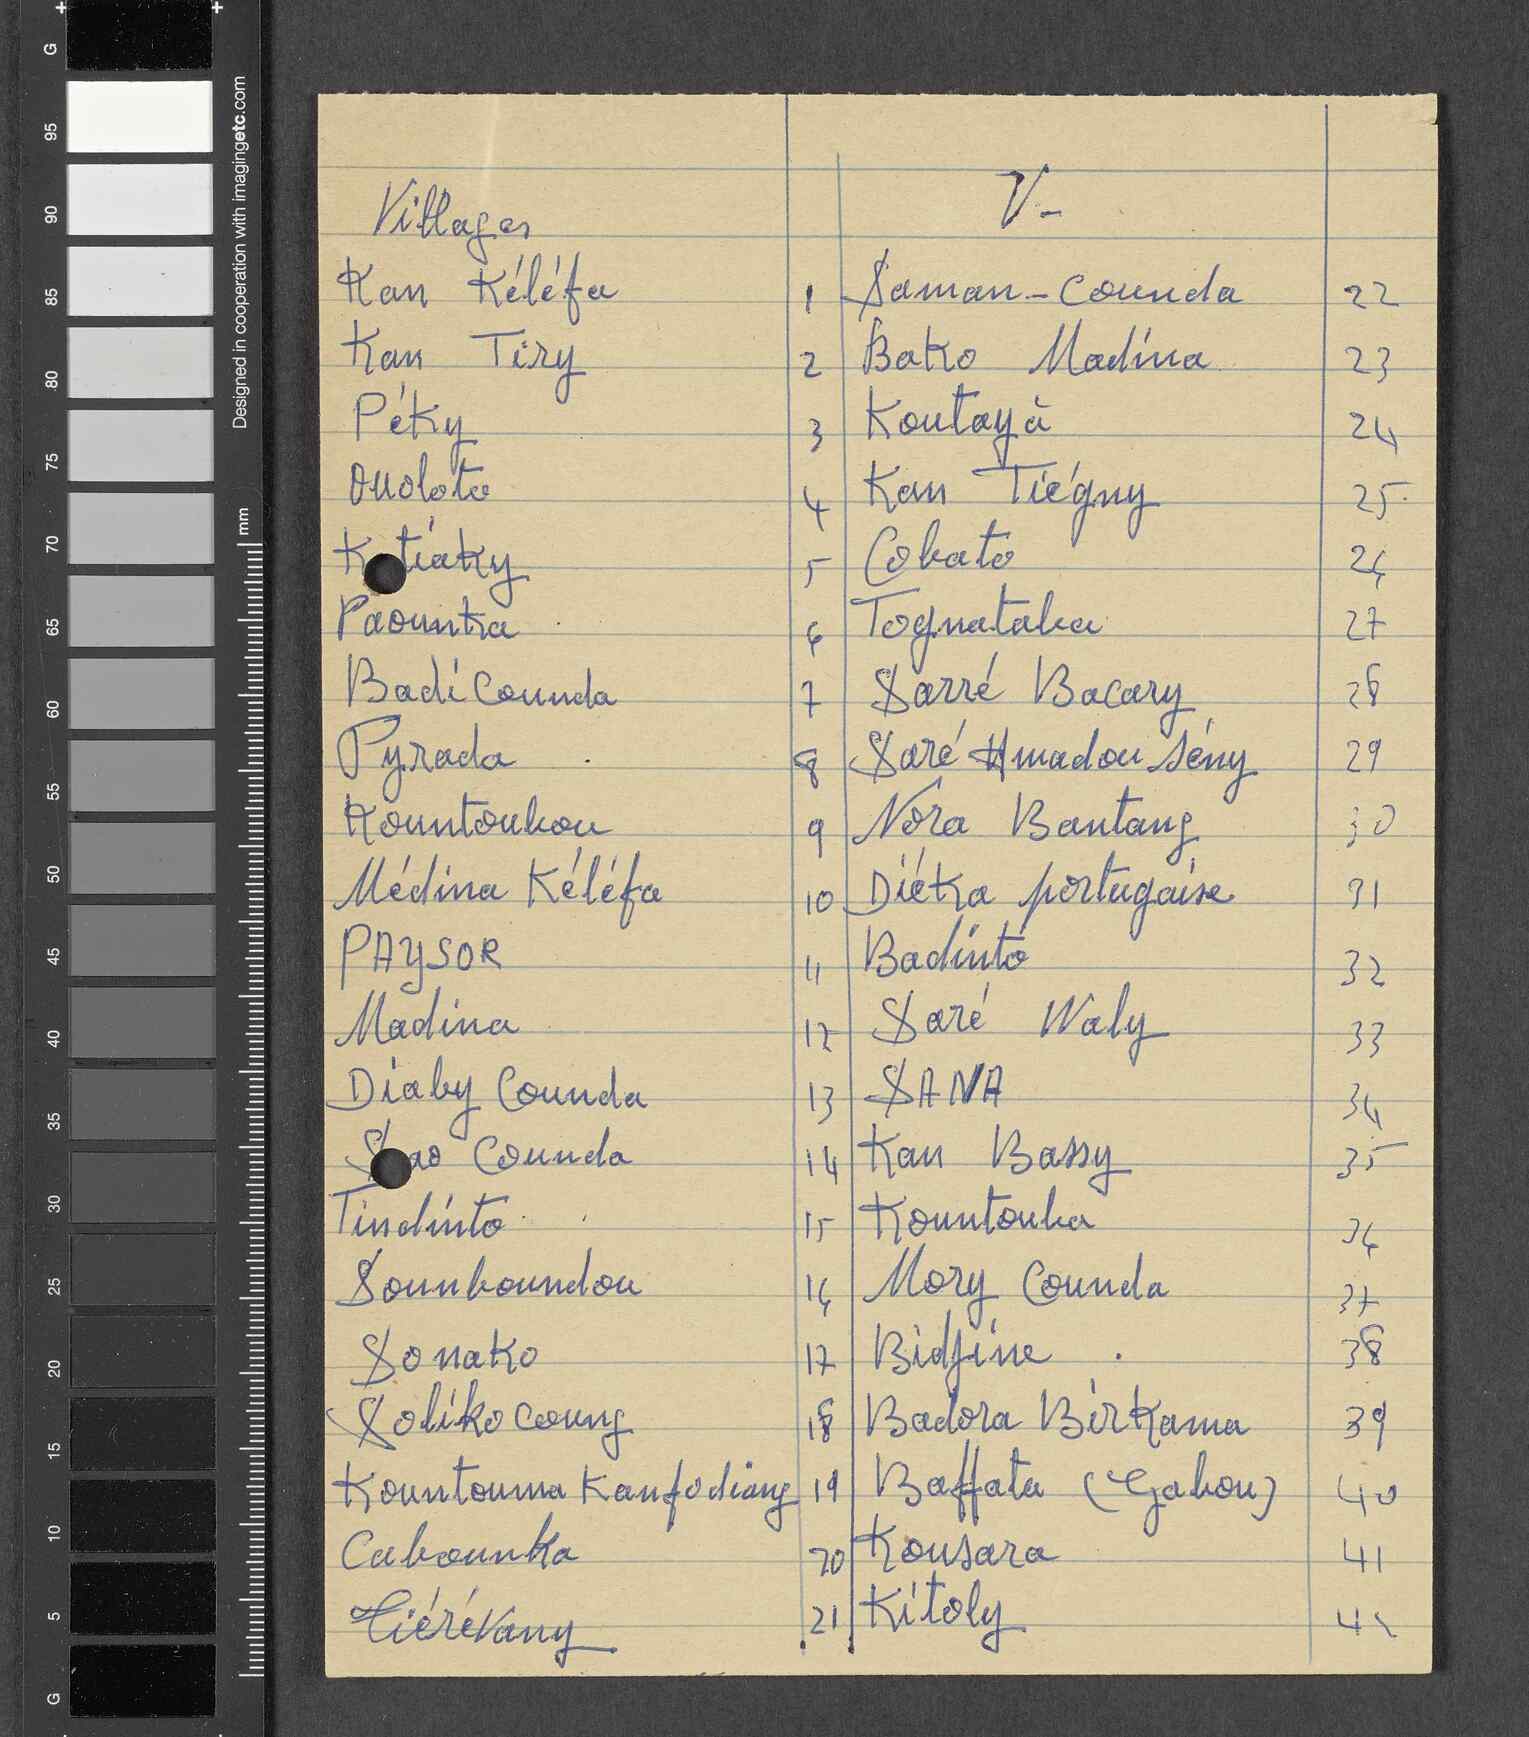 Villages
Kan Kéléfa 1
Kan Tiry 2
Péky 3
Ouoloto 4
K tiaky 5
Paounka 6
Badi Counda 7
Pyrada 8
Kountoubou 9
Médina Kéléfa 10
PAYSOR 11
Madina 12
Diaby Counda 13
S ao Counda 14
Tindinto 15
Sounboundou 16
Sonako 17
Soliko coung 18
Kountouma Kanfodiang 19
Cabounka 20
Tiérévany 21
V-
Saman-Counda 22
Bako Madina 23
Koutayà 24
Kan Tiégny 25
Cobato 26
Tognataba 27
Sarré Bacary 28
Saré Amadou Sény 29
Nora Bantang 30
Diéka portugaise 31
Badinto 32
Saré Waly 33
SANA 34
Kan Bassy 35
Kountouba 36
Mory Counda 37
Bidjine 38
Badora Birkama 39
Baffata (Gabou) 40
Kousara 41
Kitoly 42
G
95
90
85
80
75
70
65
60
55
50
45
40
35
30
25
20
15
10
5
G
mm
Designed in cooperation with imagingetc.com